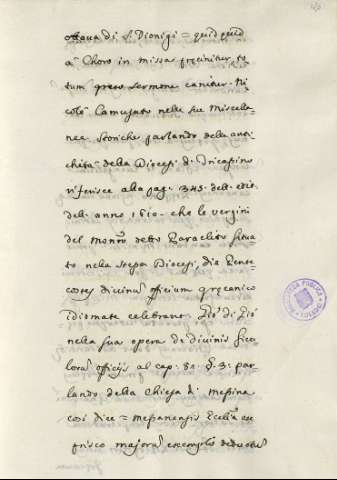 ottava di S. Dionigi = quidquid
a Choro in missa precinitur, to
tum greco sermone canitur. Ni
colò Camusato nelle sue Miscela
nee Storiche parlando delle anti
chità della Diocesi di Tricassino
riferisce alla pag. 345. dell. ediz.
dell. anno 1610. che le vergini
del Monro detto Paracleto situa
to nella stessa Diocesi, die Pente
costes divinum officium grecanico
idiomate celebrant. Gio: di Gio
nella sua opera de divinis Sicu
lorum officijs al cap. 8. §. 3. par
lando della Chiesa di Messina
così dice = Messanensis Ecclia
prisco majorum exemplo
BIBLIOTECA PUBLICA
TOLEDO